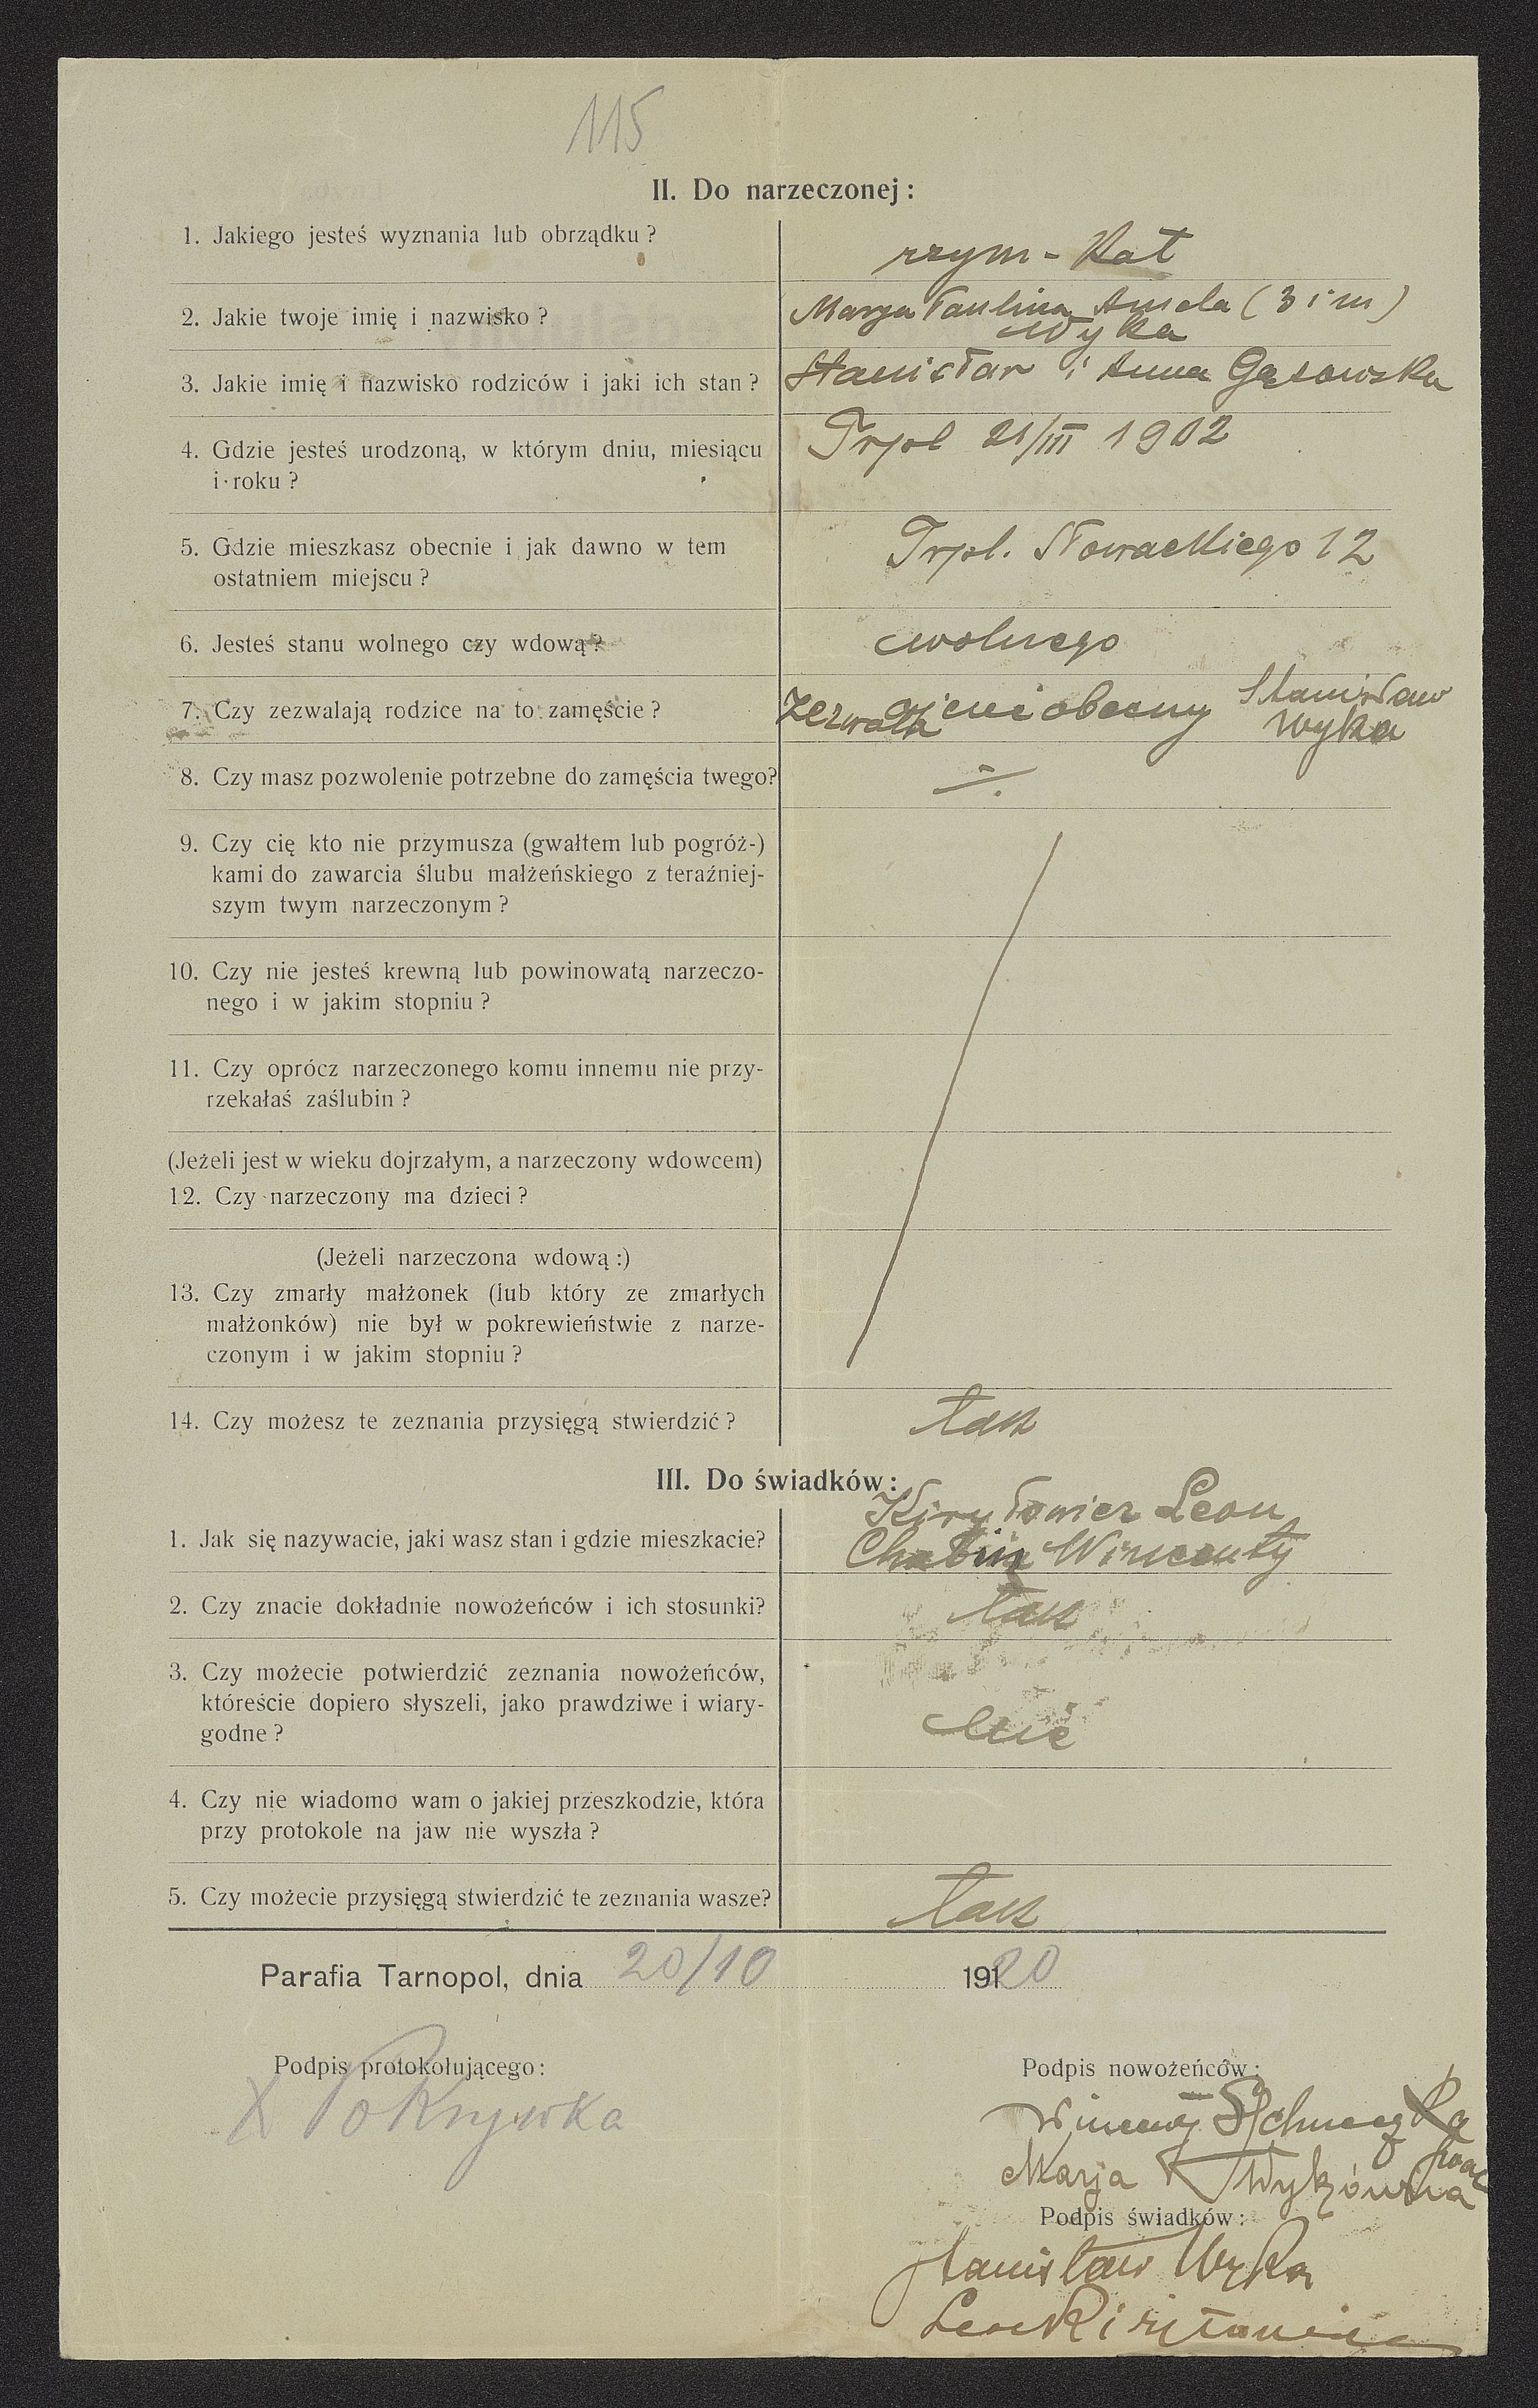 115
II. Do narzeczonej:
1. Jakiego jesteś wyznania lub obrządku?
rzym-Kat
2. Jakie twoje imię i nazwisko?
Marya Paulina Amela (3 im)
Wyka
3. Jakie imię i nazwisko rodziców i jaki ich stan?
Stanisław i Anna Gąsowska
4. Gdzie jesteś urodzoną, w którym dniu, miesiącu
i roku?
Trpol 21/III 1902
5. Gdzie mieszkasz obecnie i jak dawno w tem
ostatniem miejscu?
Trpl. Nowackiego 12
6. Jesteś stanu wolnego czy wdową?
wolnego
7. Czy zezwalają rodzice na to zamęście?
Zezwala ojciec obecny Stanisław
Wyka
8. Czy masz pozwolenie potrzebne do zamęścia twego?
9. Czy cię kto nie przymusza (gwałtem lub pogróż-)
kami do zawarcia ślubu małżeńskiego z teraźniej-
szym twym narzeczonym?
10. Czy nie jesteś krewną lub powinowatą narzeczo-
nego i w jakim stopniu?
11. Czy oprócz narzeczonego komu innemu nie przy-
rzekałaś zaślubin?
(Jeżeli jest w wieku dojrzałym, a narzeczony wdowcem)
12. Czy narzeczony ma dzieci?
(Jeżeli narzeczona wdową:)
13. Czy zmarły małżonek (lub który ze zmarłych
małżonków) nie był w pokrewieństwie z narze-
czonym i w jakim stopniu?
14. Czy możesz te zeznania przysięgą stwierdzić?
tak
III. Do świadków:
Leon
1. Jak się nazywacie, jaki wasz stan i gdzie mieszkacie?
Wincenty
2. Czy znacie dokładnie nowożeńców i ich stosunki?
tak
3. Czy możecie potwierdzić zeznania nowożeńców,
któreście dopiero słyszeli, jako prawdziwe i wiary-
godne?
nie
4. Czy nie wiadomo wam o jakiej przeszkodzie, która
przy protokole na jaw nie wyszła?
5. Czy możecie przysięgą stwierdzić te zeznania wasze?
tak
Parafia Tarnopol, dnia 20/10 19120
Podpis protokołującego:
X Pokrywka
Podpis nowożeńców:
Wincenty
Marja Wykówna
Podpis świadków:
Stanisław Wyka
Leon